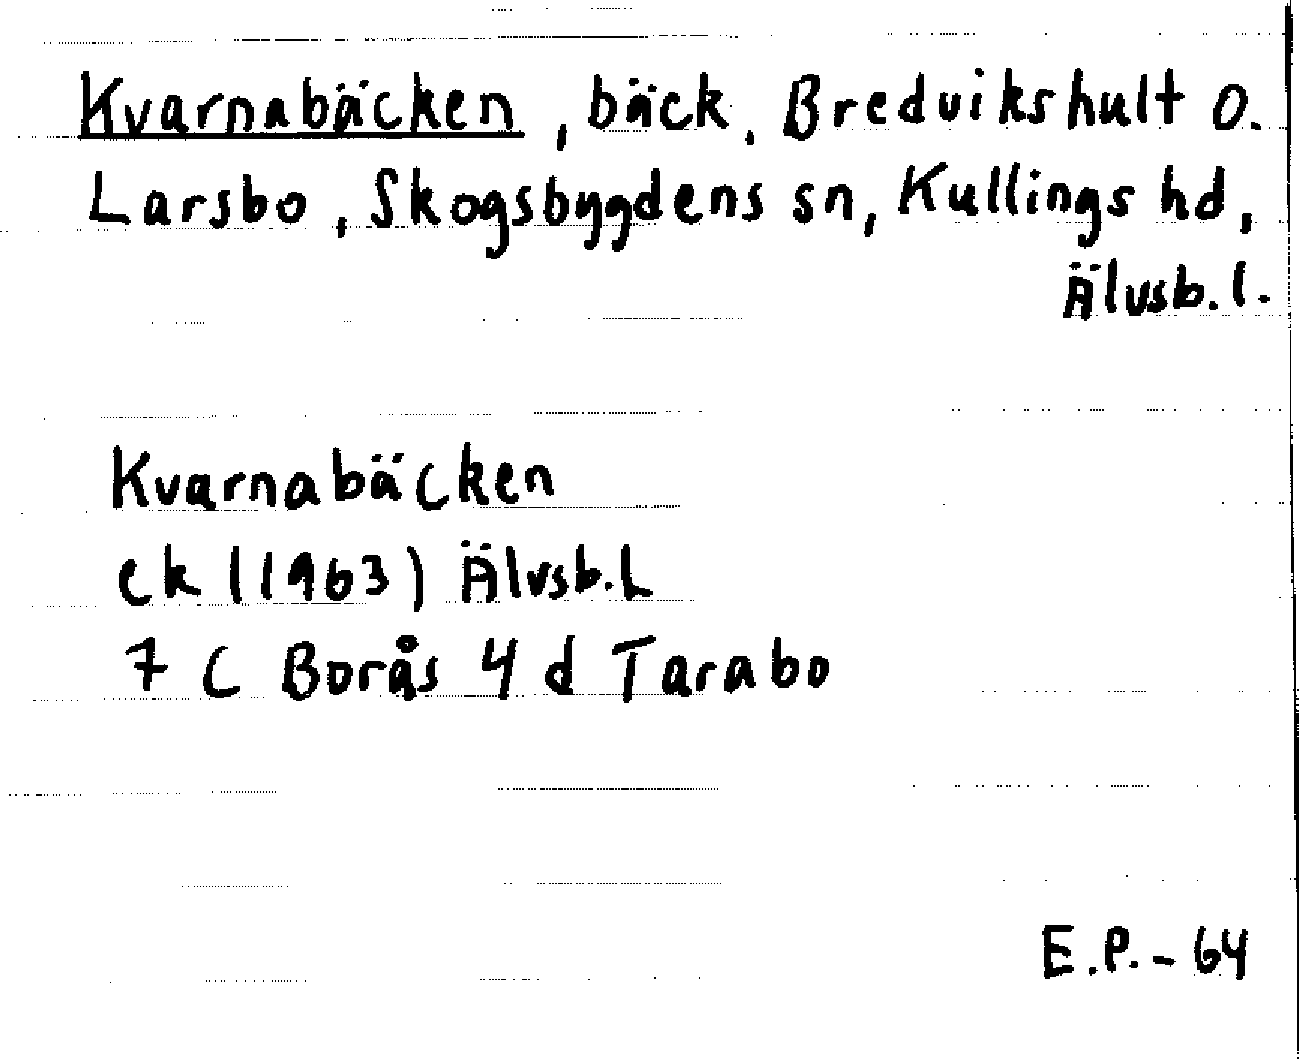 Kvarnabäcken, bäck, Bredvikshult o.
Larsbo, Skogsbygdens sn, Kullings hd,
Älvsb. l.
Kvarnabäcken
ek (1963) Älvsb. L
7 C Borås 4 d Tarabo
E.P.-64